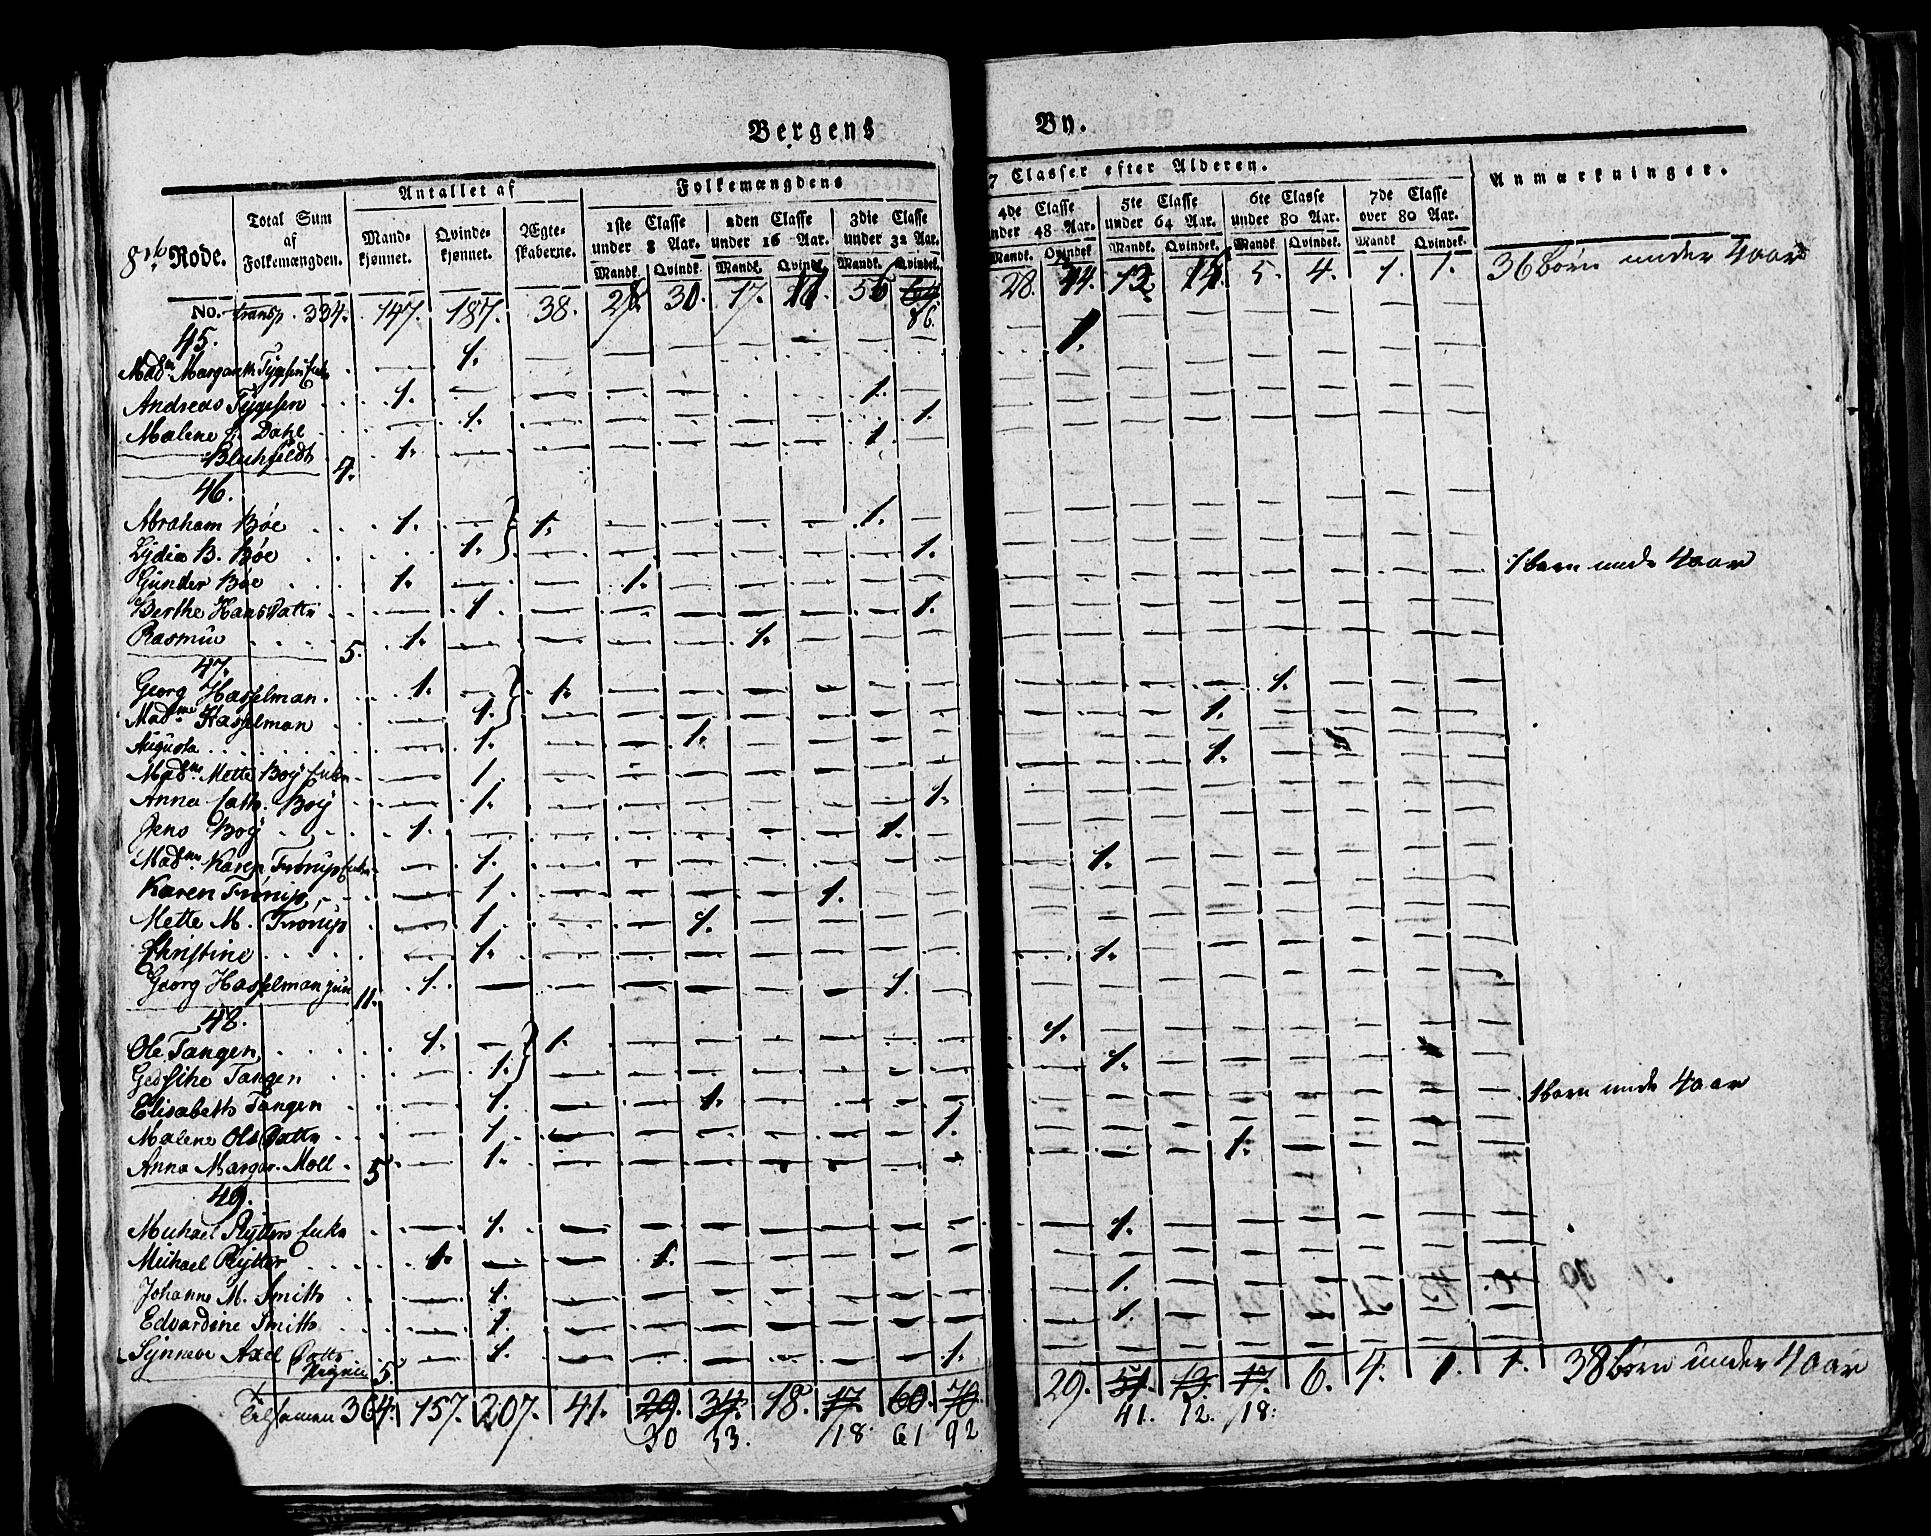 Bergens By.
Antallet af Folkemængdens 7 Classer efter Alderen. Anmærkninger.
8de Rode. Total Sum af Folkemængden. Mandkjønnet. Qvindekjønnet. Ægteskaberne. 1ste Classe under 8 Aar. 2den Classe under 16 Aar. 3die Classe under 32 Aar. 4de Classe under 48 Aar. 5te Classe under 64 Aar. 6te Classe under 80 Aar. 7de Classe over 80 Aar.
Mandk. Qvindk. Mandk. Qvindk. Mandk. Qvindek. Mandk. Qvindek. Mandk. Qvindek. Mandk. Qvindek. Mandk. Qvindek.
No. transp 334. 147. 187. 38. 30. 17. 64 28. 5. 4. 1. 1. 36 børn under 4 aar
86.
45.
Madm. Margareth Tygesen Enke — 1. — — — — — — — — 1. — — — — — —
Andreas Tygesen 1. — — — — — — 1. — — — — — — — — —
Malene C. Dahl — 1. — — — — — — 1. — — — — — — — —
Bluhfeldt 4. 1. — — — — — — 1. — — — — — — — — —
46.
Abraham Bøe 1. — } 1. — — — — 1. — — — — — — — — —
Lydia B. Bøe — 1. — — — — — 1. — — — — — — — — 1 barn unde 4 aar
Gunder Bøe 1. — — 1. — — — — — — — — — — — — —
Berthe Hans Dattr — 1. — — — — — — 1. — — — — — — — —
Rasmus 5. 1. — — — — 1. — — — — — — — — — — —
47.
Georg Hasselman. 1. — } 1. — — — — — — — — — — 1. — — —
Madme Hasselman — 1. — — — — — — — — — 1. — — — —
Augusta — 1. — — 1. — — — — — — — — — — — —
Madm. Mette Boy Enke — 1. — — — — — — — — — — 1. — — — —
Anna Cath. Boy — 1. — — — — — — 1. — — — — — — — —
Jens Boy 1. — — — — — — 1. — — — — — — — — —
Madm. Karen Trørup Enke — 1. — — — — — — — — 1. — — — — — —
Karen Trørup — 1. — — — — 1. — — — — — — — — — —
Mette M. Trørup — 1. — — 1. — — — — — — — — — — — —
Christine — 1. — — — — — — — — 1. — — — — — —
Georg Hasselman jun 11. 1. — — — — — — 1. — — — — — — — — —
48.
Ole Tangen 1. — } 1. — — — — — — 1. — — — — — — —
Gedske Tangen — 1. — — — — — — — 1. — — — — — —
Elisabeth Tangen — 1. — — 1. — — — — — — — — — — — — 1 barn unde 4 aar
Malene Ols Dattr — 1. — — — — — — 1. — — — — — — — —
Anna Margar. Moll 5. — 1. — — — — — — — — — — 1. — — — —
49.
Michael Rytters Enke — 1. — — — — — — — — 1. — — — — — —
Michael Rytter 1. — — 1. — — — — — — — — — — — — —
Johanna M. Smith — 1. — — — — — — — — 1. — — — — — —
Edvardine Smith — 1. — — — — — — — — 1. — — — — — —
Synneve Axel Dattr 5. — 1. — — — — — — 1. — — — — — — — —
Tilsamen 364. 157. 207. 41. 29. 34. 18. 17. 60. 70. 29. 51. 13. 17. 6. 4. 1. 1. 38 børn under 4 aar
30 33. 18. 61 92 41. 12. 18.